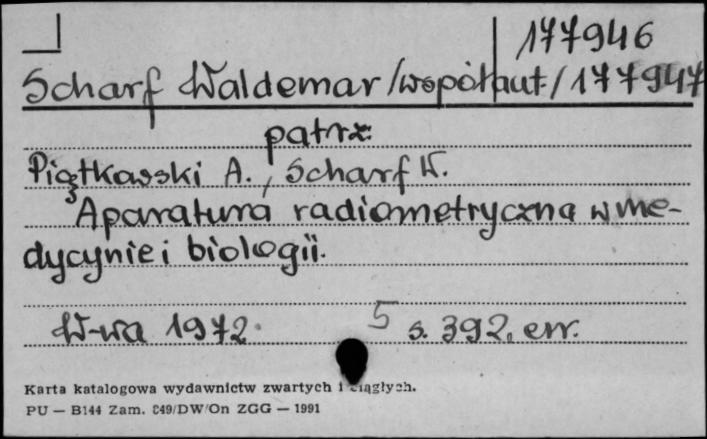 177946
Scharf Waldemar /współaut./ 177947
patrz
Piątkowski A., Scharf W.
Aparatura radiometryczna w me-
dycynie i biologii.
W-wa 1972. 5 s. 392, err.
Karta katalogowa wydawnictw zwartych i ciągłych.
PU — B144 Zam. 849/DW/On ZGG — 1991